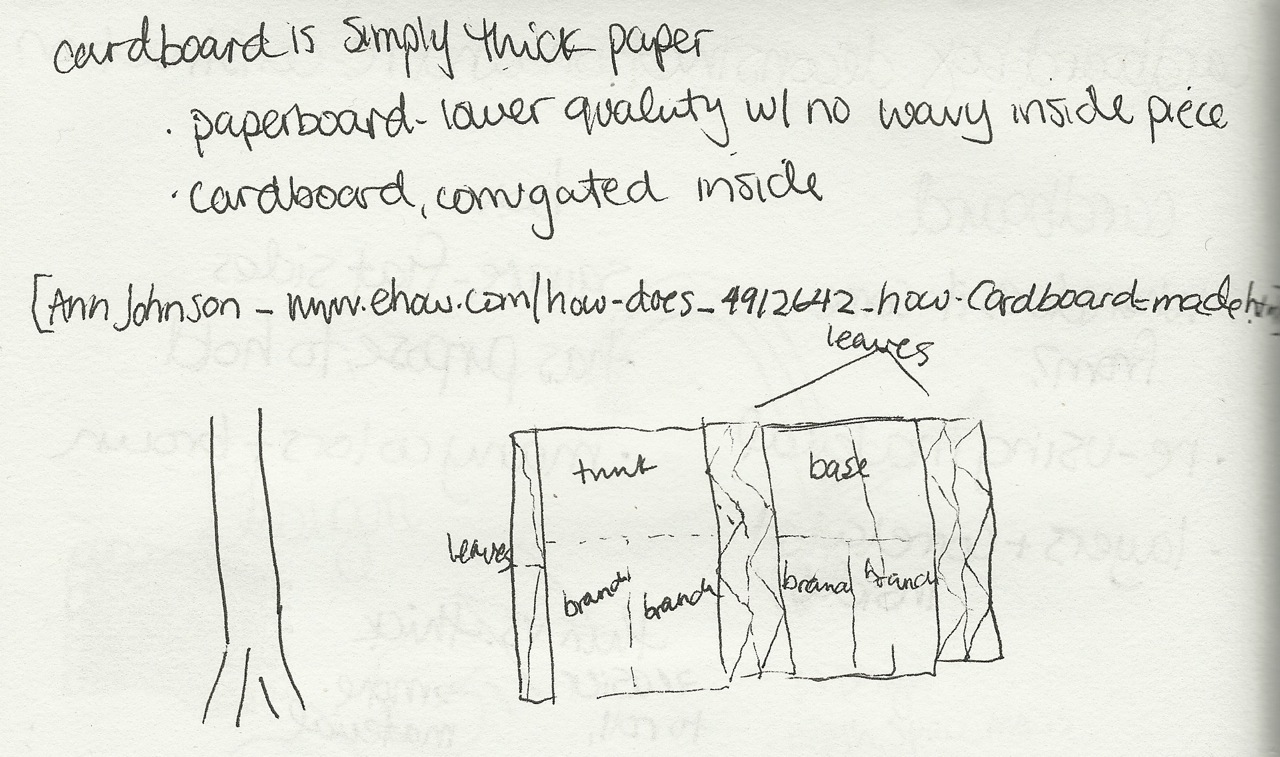 cardboard is simply thick paper
· paperboard - lower quality w/ no wavy inside piece
· cardboard, corrugated inside
[Ann Johnson - www.ehow.com/how-does_4912642_how-cardboard-made.htm
leaves
trunk base
leaves
branch branch branch branch